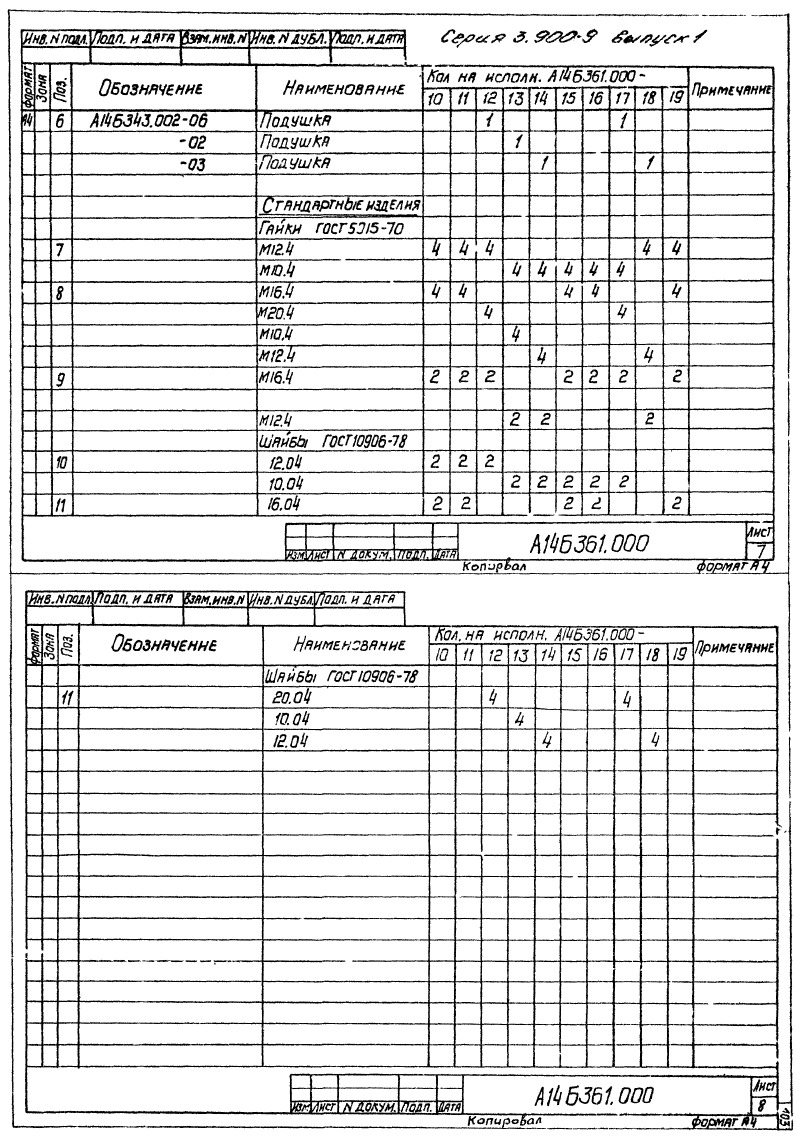 Серия 3.900-9 Выпуск 1
Инв. N подл. Подп. и дата Взам. инв. N Инв. N дубл. Подп. и дата
Формат Зона Поз. Обозначение Наименование Кол на исполн. А14Б361.000- Примечание
10 11 12 13 14 15 16 17 18 19
14 6 А14Б343.002-06 Подушка 1 1
-02 Подушка 1
-03 Подушка 1 1
Стандартные изделия
Гайки ГОСТ 5915-70
7 М12.4 4 4 4 4 4
М10.4 4 4 4 4 4
8 М16.4 4 4 4 4 4
М20.4 4 4
М10.4 4
М12.4 4 4
9 М16.4 2 2 2 2 2 2 2
М12.4 2 2 2
Шайбы ГОСТ 10906-78
10 12.04 2 2 2
10.04 2 2 2 2 2
11 16.04 2 2 2 2 2
Изм Лист N докум. Подп. Дата А14Б361.000 Лист 7
Копирвал формат А4
Инв. N подл. Подп. и дата Взам. инв. N Инв. N дубл. Подп. и дата
Формат Зона Поз. Обозначение Наименование Кол. на исполн. А14Б361.000- Примечание
10 11 12 13 14 15 16 17 18 19
Шайбы ГОСТ 10906-78
11 20.04 4 4
10.04 4
12.04 4 4
Изм Лист N докум. Подп. Дата А14Б361.000 Лист 8
Копировал формат А4
103